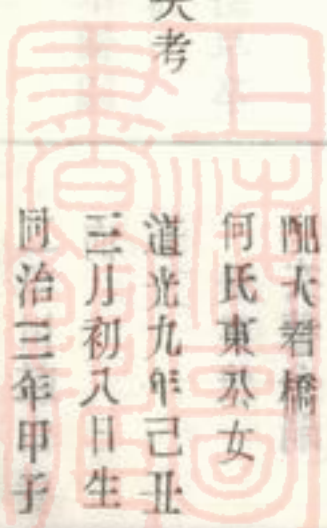 大考
配大君橋
何氏東癶女
道光九年己丑
三月初八日生
同治三年甲子